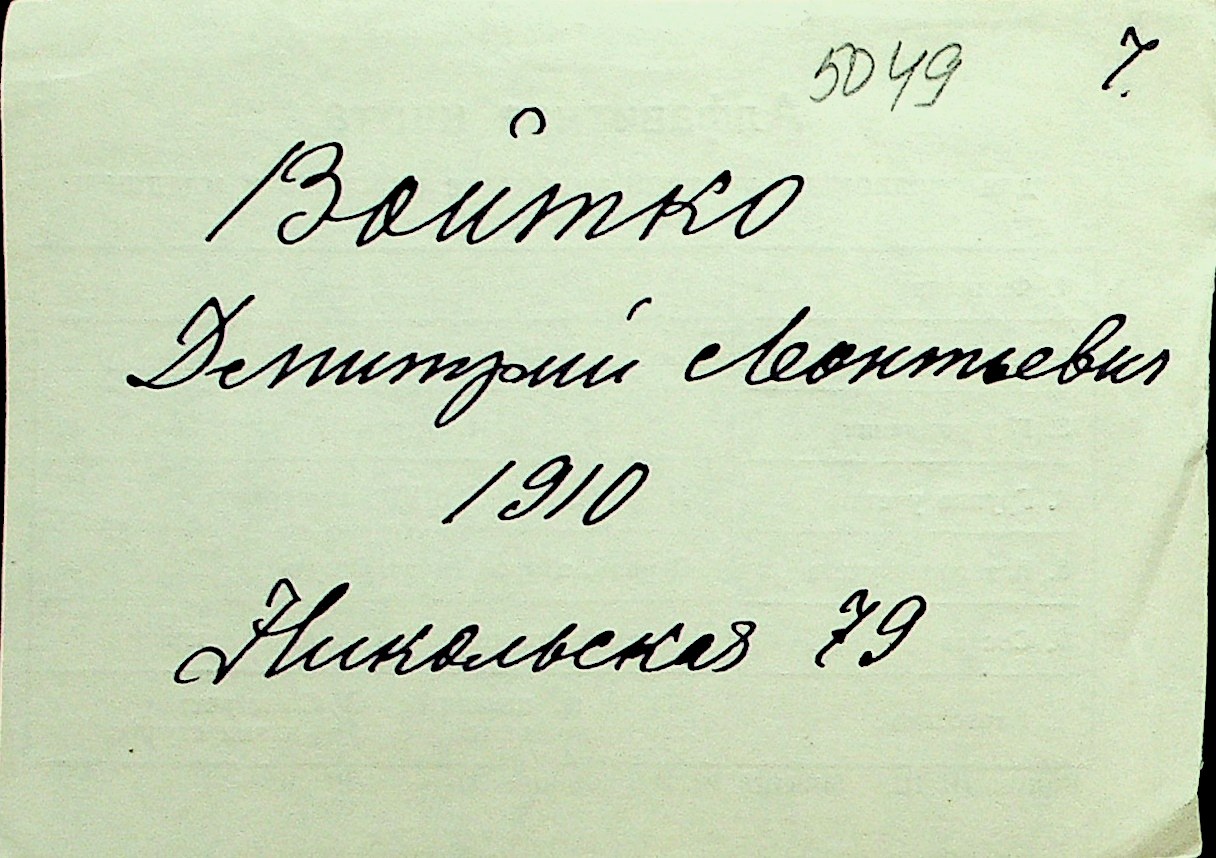 5049 7.
Войтко
Дмитрий Леонтьевич
1910
Никольская 79